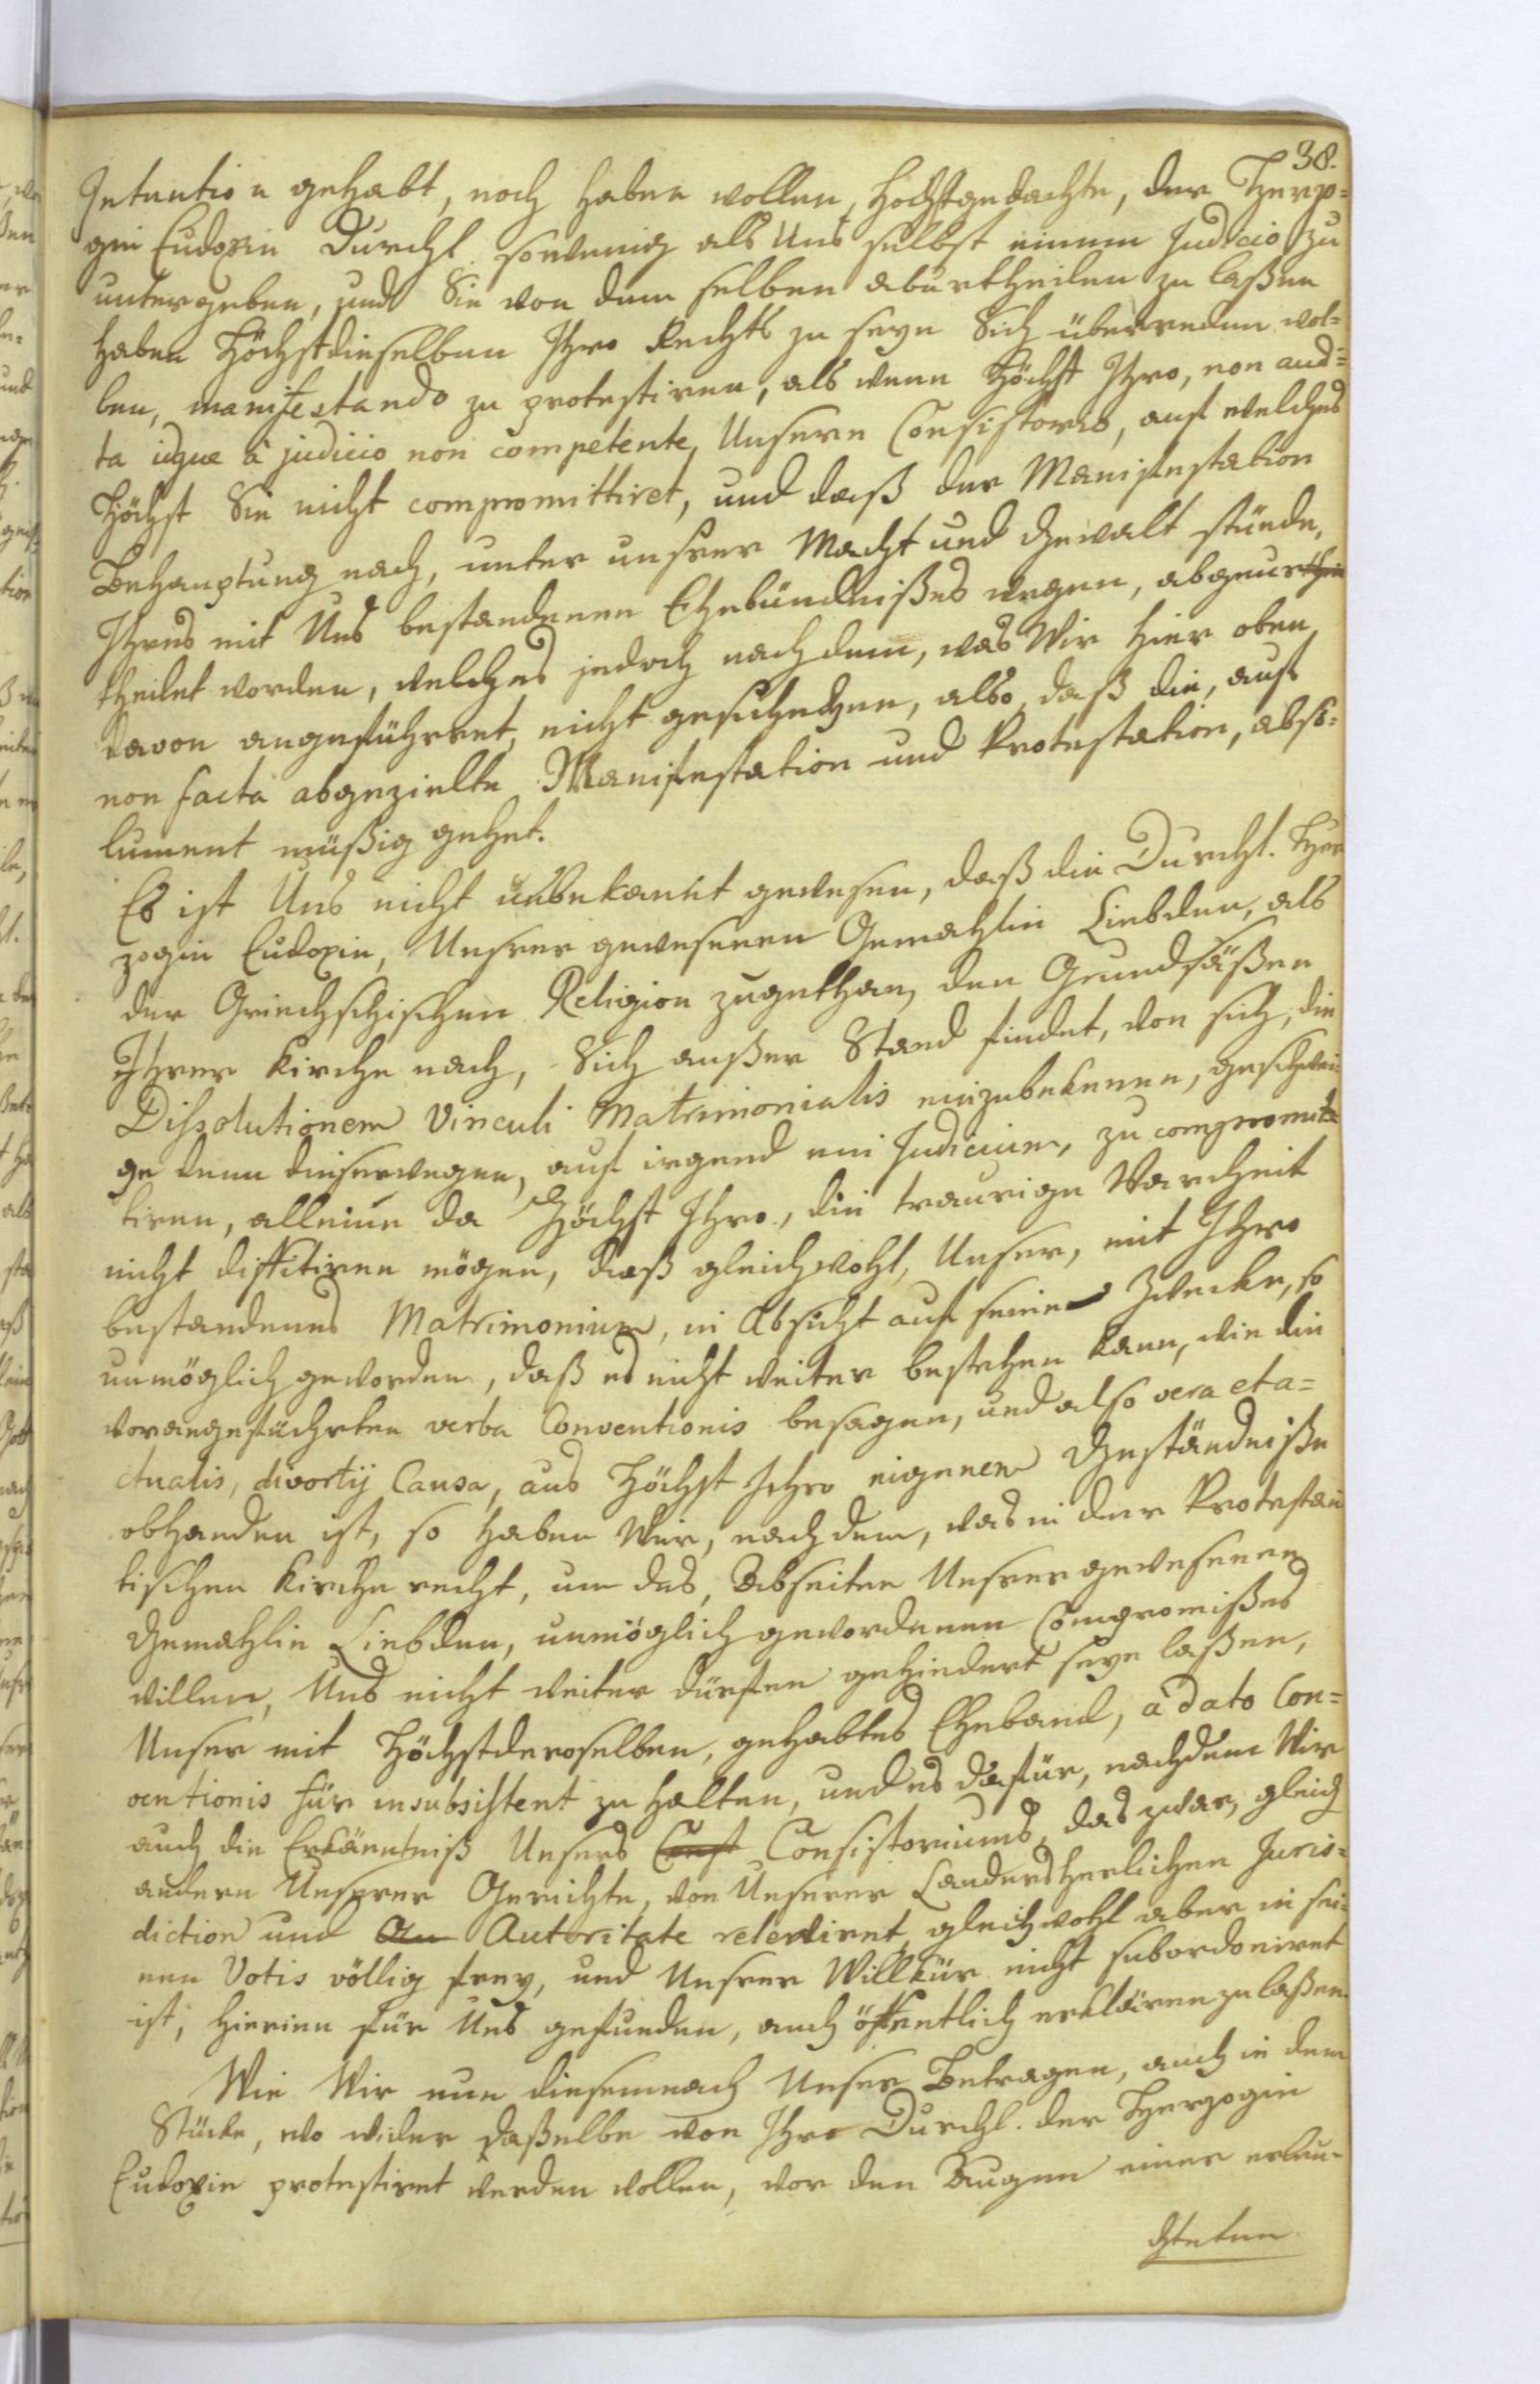 38.
Intention gehabt, noch haben wollen, Hochstgedachte, der Herzo-
gin Eudoxie Durchl. sowenig als Uns selbst einem Judicio zu
untergeben, und Sie von dem selben aburtheilen zu laßen
haben Höchstdieselben Ihro Rechts zu seyn Sich überreden wol-
len, manifestando zu protestiren, als wenn Höchst Ihro, non audi-
ta idque à judicio non competente, Unsern Consistorio, auf welches
Höchst Sie nicht compromittiret, und daß der Manifestation
Behauptung nach, unter unsrer Macht und Gewalt stünde,
Ihres mit Uns bestandenen Ehebündnißes wegen, abgeur
theilet worden, welches jedoch nach dem, was Wir hier oben
davon angeführet, nicht geschehen, also, daß die, auf
non facta abgezielte Manifestation und Protestation, abso-
lument müßig gehet.
Es ist Uns nicht unbekannt gewesen, daß die Durchl. Her
zogin Eudoxie, Unsrer gewesenen Gemahlin Liebden, als
der Griechschischen Religion zugethan, den Grundsäßen
Ihrer Kirche nach, Sich außer Stand findet, von sich, die
Dissolutionem Vinculi Matrimonialis einzubekennen, geschwei-
ge denn dieserwegen, auf irgend ein Judicium, zu compromit-
tiren, alleine da Höchst Ihro, die traurige Warheit
nicht diffitiren mögen, daß gleichwohl, Unser, mit Ihro
bestandenes Matrimonium, in Absicht auf seine Zwecke, so
unmöglich geworden, daß es nicht weiter bestehen kann, wie die
vorangeführten verba Conventionis besagen, und also vera et a-
ctualis, divortij Causa, aus Höchst Ihro eigenen Geständniße
obhanden ist, so haben Wir, nach dem, was in der Protestan
tischen Kirche recht, um des, Abseiten Unsrer gewesenen
Gemahlin Liebden, unmöglich gewordenen Compromißes
willen, Uns nicht weiter dürfen gehindert seyn laßen,
Unser mit Höchstderoselben, gehabtes Eheband, à dato Con-
ventionis für insubsistent zu halten, und es dafür, nachdem Wir
auch die Erkänntniß Unsers Consistoriums, das zwar, gleich
andern Unserer Gerichte, von Unserer Landesherlichen Juris-
diction und Autoritate releviret, gleichwohl aber in sei-
nen Votis völlig frey, und Unsrer Willkür nicht subordoniret
ist, hierinn für Uns gefunden, auch öffentlich erklären zu laßen.
Wie Wir nun diesemnach Unser Betragen, auch in dem
Stücke, wo wider daßelbe von Ihro Durchl. der Herzogin
Eudoxie protestiret werden wollen, vor den Augen einer erleu-
chteten